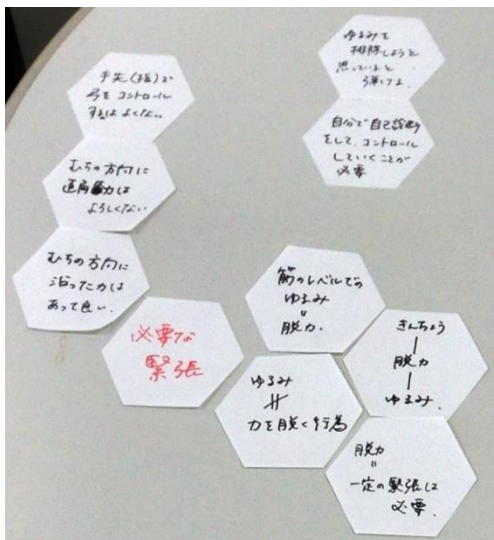 手先(指)で
弓をコントロール
するはよくない
むちの方向に
直角力は
よろしくない
むちの方向に
沿った力は
あって良い.
必要な
緊張
ゆるみを
排除しようと
思っていると
弾ける.
自分で自己診断
をして、コントロール
していくことが
必要
筋のレベルでの
ゆるみ
=
脱力.
ゆるみ
≠
力を脱く行為
きんちょう
|
脱力
|
ゆるみ.
脱力
=
一定の緊張は
必要.